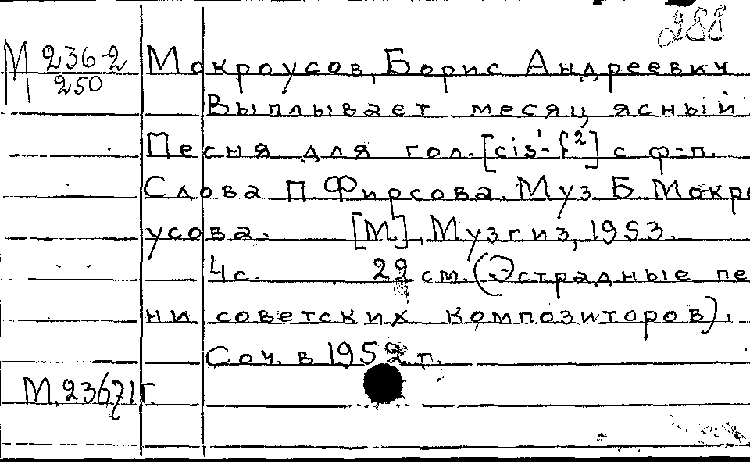 288
М 236-2 Мокроусов, Борис Андреевич
250 Выплывает месяц ясный
Песня для гол. [cis¹-f²] с ф-п.
Слова П Фирсова. Муз Б. Мокро
усова. [М.], Музгиз, 1953.
4 с. 29 см. (Эстрадные пе
ни советских композиторов).
Соч. в 1952 г.
М. 23671г